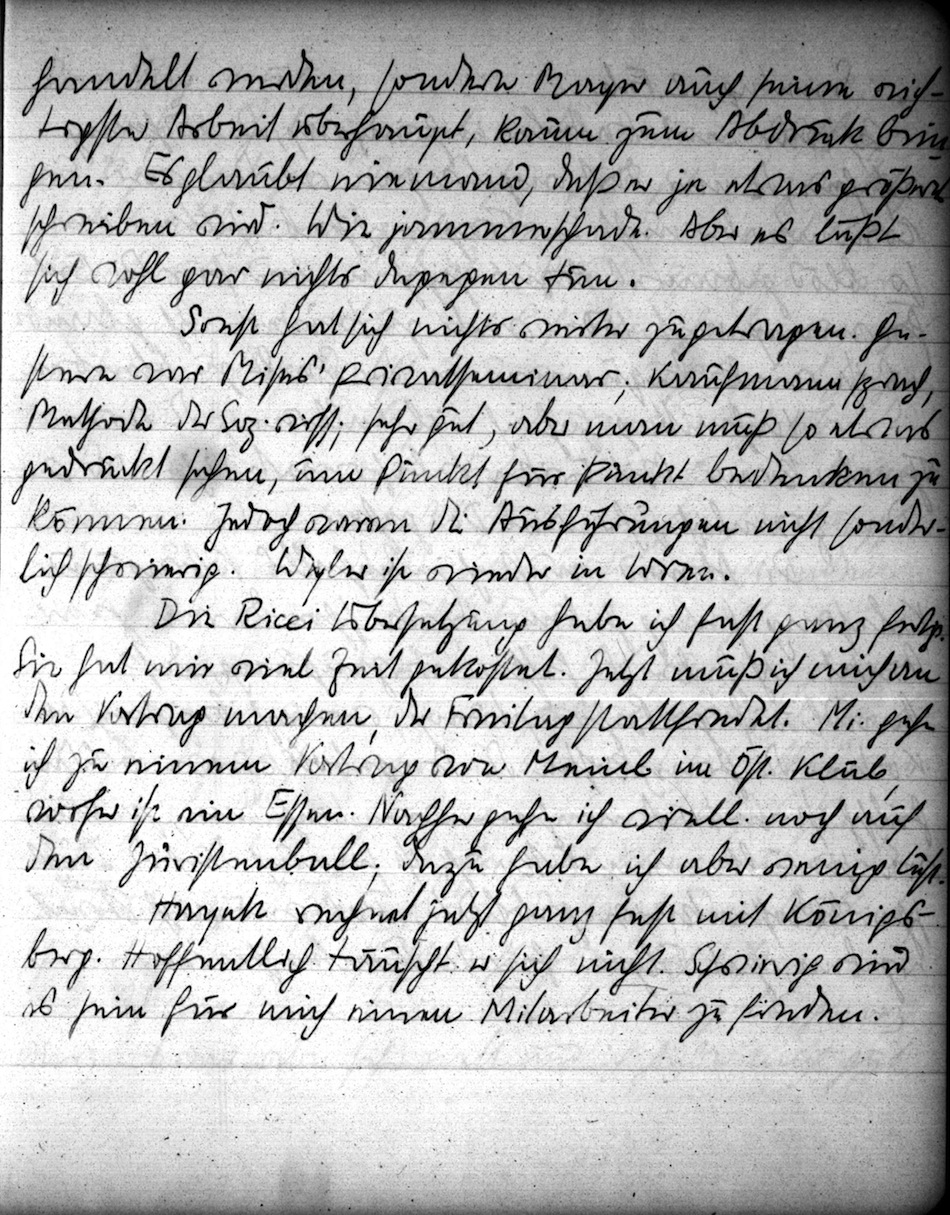 handelt werden, sondern Mayer auch seine wich-
tigste Arbeit überhaupt, kaum zum Abdruck brin
gen. Es glaubt niemand, daß er je etwas größeres
schreiben wird. Wie jammerschade. Aber es läßt
sich wohl gar nichts dagegen tun.
Sonst hat sich nichts weiter zugetragen. Ge-
stern war Mises' Privatseminar; Kaufmann sprach,
Methode der Soz. wiss; sehr gut, aber man muß so etwas
gedruckt sehen, um Punkt für Punkt bedenken zu
können. Jedoch waren die Ausführungen nicht sonder-
lich schwierig. Weyler ist wieder in Wien.
Die Ricci Übersetzung habe ich fast ganz fertig.
Sie hat mir viel Zeit gekostet. Jetzt muß ich mich an
den Vortrag machen, der Freitag stattfindet. Mi. gehe
ich zu einem Vortrag von Meinl im Öst. Klub,
vorher ist ein Essen. Nachher gehe ich viell. noch auf
den Juristenball; dazu habe ich aber wenig Lust.
Hayek rechnet jetzt ganz fest mit Königs-
berg. Hoffentlich täuscht er sich nicht. Schwierig wird
es sein für mich einen Mitarbeiter zu finden.